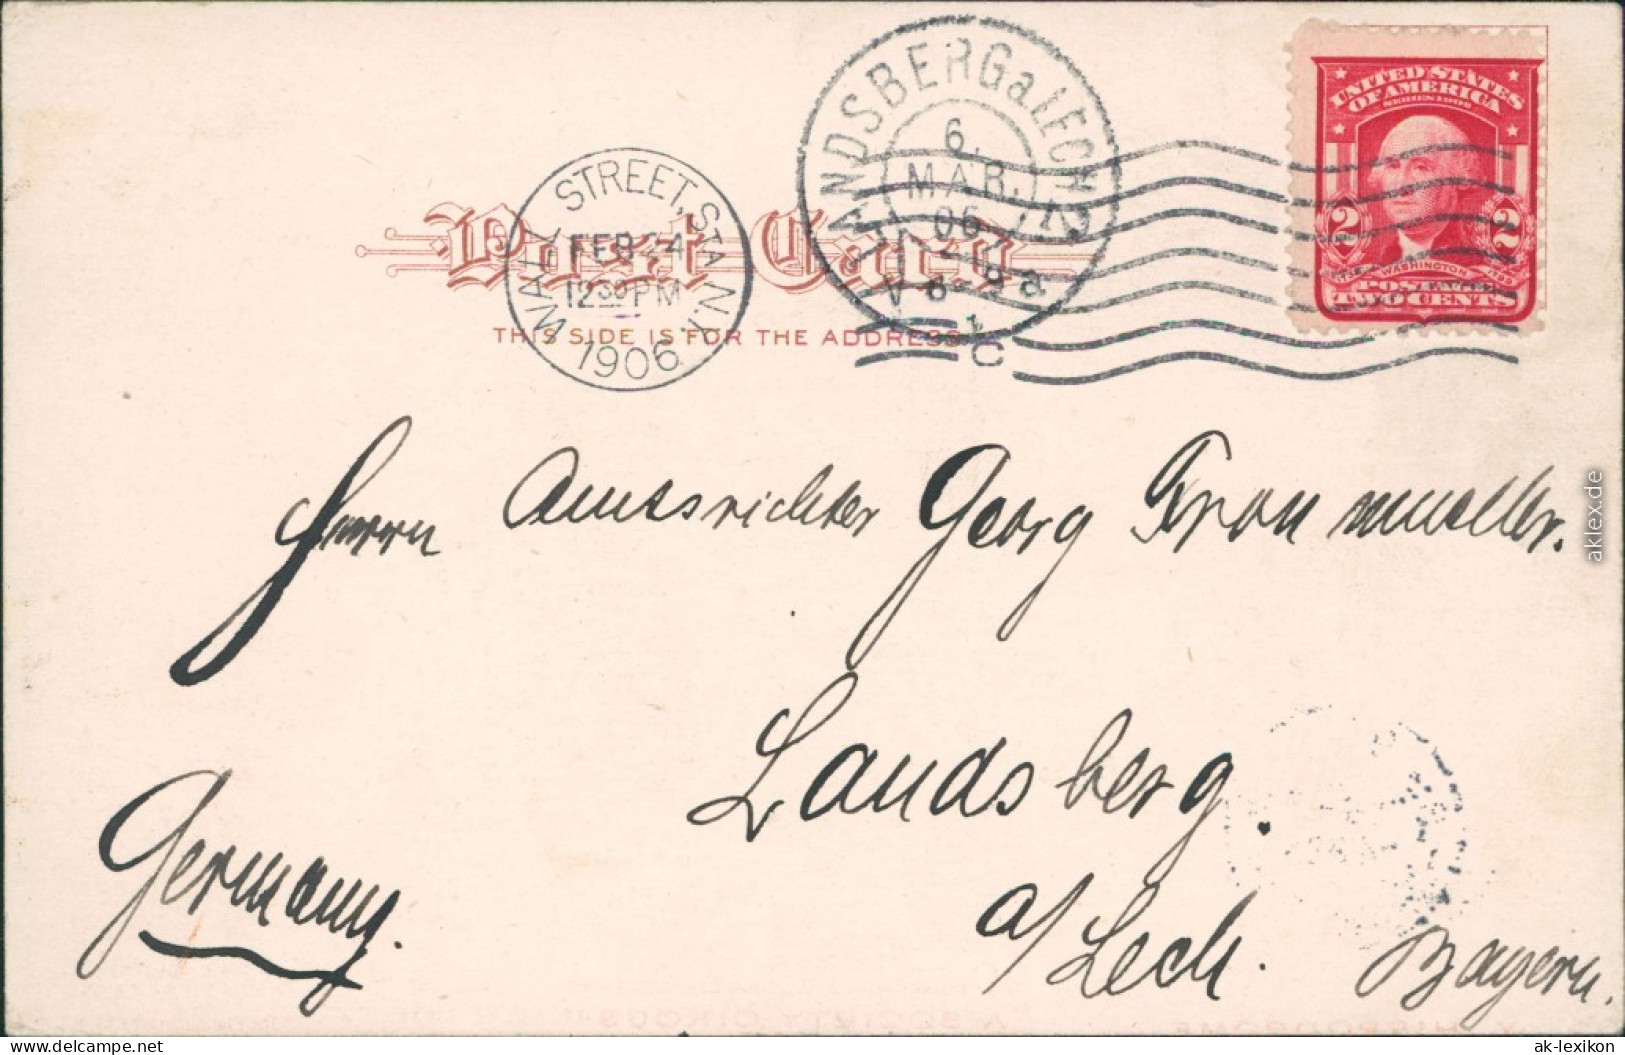 LANDSBERG a/LECH
6.
MAR.
06
V 8-9a
WALL STREET, STA N.Y.
FEB 24
12 30 PM
1906
UNITED STATES
OF AMERICA
SERIES 1902
2 2
WASHINGTON
POSTAGE
TWO CENTS
Post Card
THIS SIDE IS FOR THE ADDRESS
1
C
Herrn Amtsrichter Georg Kronmueller.
Landsberg.
a/Lech. Bayern.
Germany.
aklex.de
www.delcampe.net
ak-lexikon